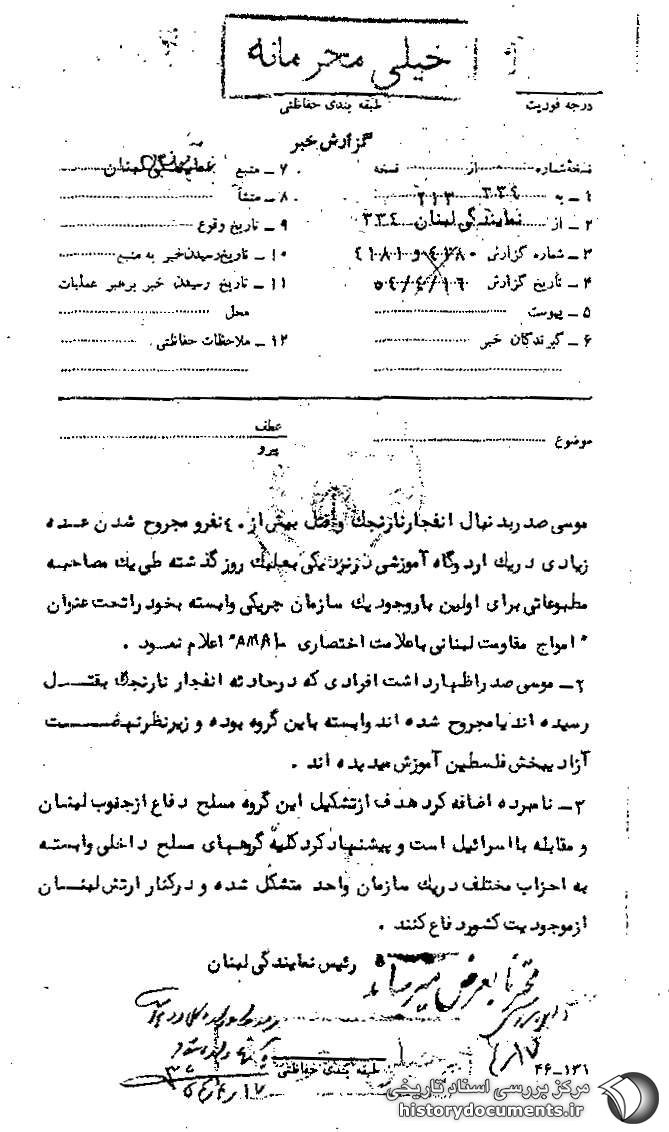 خیلی محرمانه
درجه فوریت
طبقه بندی حفاظتی
گزارش خبر
نسخه شماره از نسخه
۱ – به ۳۳۴ ۲۱۳
۲ – از نمایندگی لبنان ۳۳۴
۳ – شماره گزارش
۴ – تاریخ گزارش ۵۴/۴/۱۶
۵ – پیوست
۶ – گیرندگان خبر
۷ – منبع
۸ – منشأ
۹ – تاریخ وقوع
۱۰ – تاریخ رسیدن خبر به منبع
۱۱ – تاریخ رسیدن خبر برهبر عملیات
محل
۱۲ – ملاحظات حفاظتی
موضوع
عطف
پیرو
موسی صدر بدنبال انفجار نارنجک و قتل بیش از ۴۰ نفر و مجروح شدن عده
زیادی در یک اردوگاه آموزشی در نزدیکی بعلبک روز گذشته طی یک مصاحبه
مطبوعاتی برای اولین بار وجود یک سازمان چریکی وابسته بخود را تحت عنوان
" امواج مقاومت لبنانی با علامت اختصاری اعلام نمود .
۲ – موسی صدر اظهار داشت افرادی که در حادثه انفجار نارنجک بقتل
رسیده اند یا مجروح شده اند وابسته باین گروه بوده و زیر نظر نهضت
آزادیبخش فلسطین آموزش میدیده اند .
۳ – نامبرده اضافه کرد هدف از تشکیل این گروه مسلح دفاع از جنوب لبنان
و مقابله با اسرائیل است و پیشنهاد کرد کلیه گروههای مسلح داخلی وابسته
به احزاب مختلف در یک سازمان واحد متشکل شده و در کنار ارتش لبنان
از موجودیت کشور دفاع کنند .
رئیس نمایندگی لبنان
محترما بعرض میرساند
۱۷/۴
طبقه بندی حفاظتی
۴۶–۱۳۱
مرکز بررسی اسناد تاریخی
historydocuments.ir